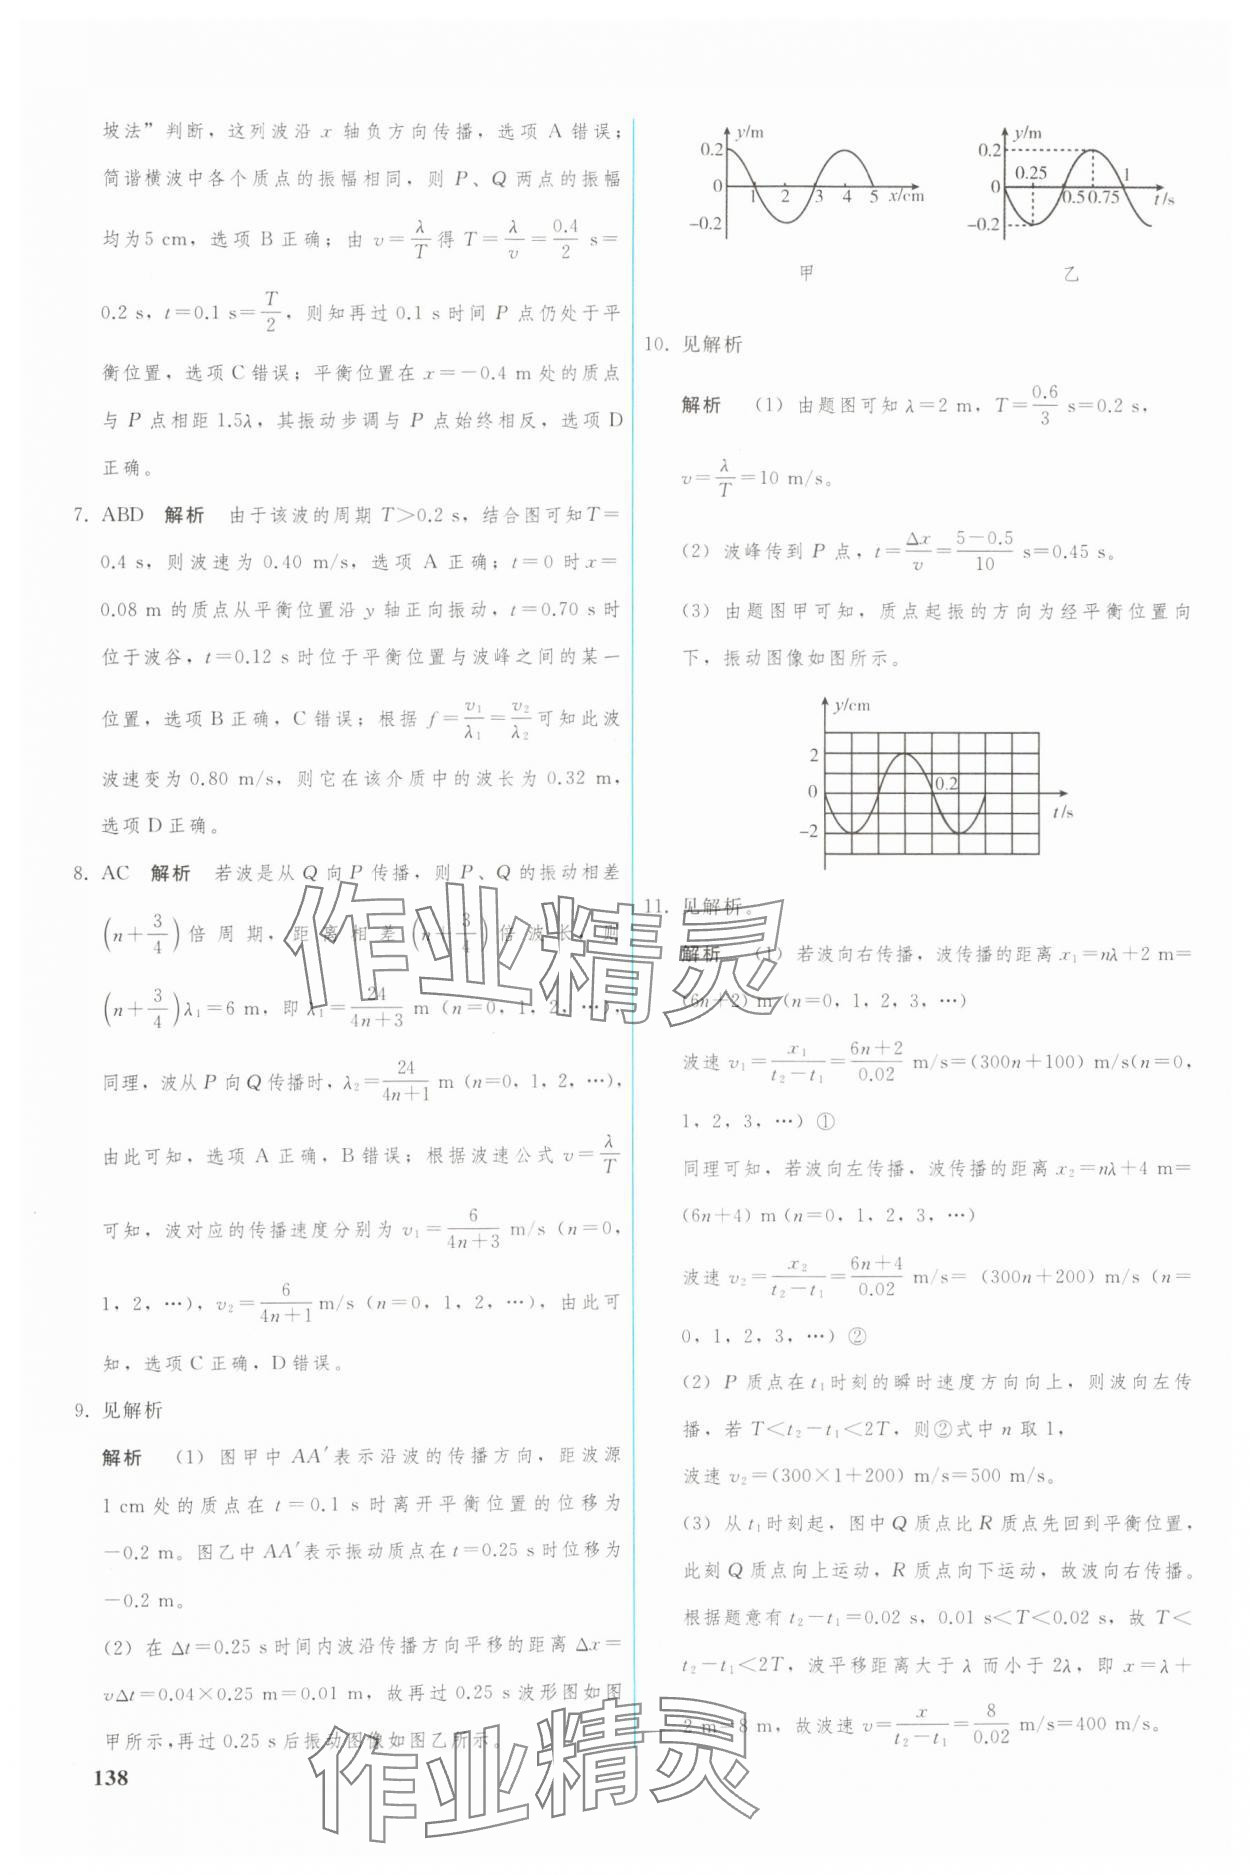 坡法”判断，这列波沿 x 轴负方向传播，选项 A 错误；
简谐横波中各个质点的振幅相同，则 P、Q 两点的振幅
均为5 cm，选项 B 正确；由 v=λ/T 得 T=λ/v=0.4/2 s=
0.2 s，t=0.1 s=T/2，则知再过 0.1 s 时间 P 点仍处于平
衡位置，选项 C 错误；平衡位置在 x=-0.4 m 处的质点
与 P 点相距 1.5λ，其振动步调与 P 点始终相反，选项 D
正确。
7. ABD 解析 由于该波的周期 T>0.2 s，结合图可知 T=
0.4 s，则波速为 0.40 m/s，选项 A 正确；t=0 时 x=
0.08 m 的质点从平衡位置沿 y 轴正向振动，t=0.70 s 时
位于波谷，t=0.12 s 时位于平衡位置与波峰之间的某一
位置，选项 B 正确，C 错误；根据 f=v₁/λ₁=v₂/λ₂ 可知此波
波速变为 0.80 m/s，则它在该介质中的波长为 0.32 m，
选项 D 正确。
8. AC 解析 若波是从 Q 向 P 传播，则 P、Q 的振动相差
(n+3/4) 倍周期，距离相差 (n+3/4) 倍波长，则
(n+3/4)λ₁=6 m，即 λ₁=24/(4n+3) m (n=0，1，2，…)，
同理，波从 P 向 Q 传播时，λ₂=24/(4n+1) m (n=0，1，2，…)，
由此可知，选项 A 正确，B 错误；根据波速公式 v=λ/T
可知，波对应的传播速度分别为 v₁=6/(4n+3) m/s (n=0，
1，2，…)，v₂=6/(4n+1) m/s (n=0，1，2，…)，由此可
知，选项 C 正确，D 错误。
9. 见解析
解析 (1) 图甲中 AA′表示沿波的传播方向，距波源
1 cm 处的质点在 t=0.1 s 时离开平衡位置的位移为
-0.2 m。图乙中 AA′表示振动质点在 t=0.25 s 时位移为
-0.2 m。
(2) 在 Δt=0.25 s 时间内波沿传播方向平移的距离 Δx=
vΔt=0.04×0.25 m=0.01 m，故再过 0.25 s 波形图如图
甲所示，再过 0.25 s 后振动图像如图乙所示。
138
y/m
0.2
0
-0.2
1 2 3 4 5 x/cm
甲
y/m
0.2
0.25 1
0
0.5 0.75 t/s
-0.2
乙
10. 见解析
解析 (1) 由题图可知 λ=2 m，T=0.6/3 s=0.2 s，
v=λ/T=10 m/s。
(2) 波峰传到 P 点，t=Δx/v=(5-0.5)/10 s=0.45 s。
(3) 由题图甲可知，质点起振的方向为经平衡位置向
下，振动图像如图所示。
y/cm
2
0.2
0
t/s
-2
11. 见解析。
解析 (1) 若波向右传播，波传播的距离 x₁=nλ+2 m=
(6n+2) m (n=0，1，2，3，…)
波速 v₁=x₁/(t₂-t₁)=(6n+2)/0.02 m/s=(300n+100) m/s(n=0，
1，2，3，…) ①
同理可知，若波向左传播，波传播的距离 x₂=nλ+4 m=
(6n+4) m (n=0，1，2，3，…)
波速 v₂=x₂/(t₂-t₁)=(6n+4)/0.02 m/s= (300n+200) m/s (n=
0，1，2，3，…) ②
(2) P 质点在 t₁ 时刻的瞬时速度方向向上，则波向左传
播，若 T<t₂-t₁<2T，则②式中 n 取 1，
波速 v₂=(300×1+200) m/s=500 m/s。
(3) 从 t₁ 时刻起，图中 Q 质点比 R 质点先回到平衡位置，
此刻 Q 质点向上运动，R 质点向下运动，故波向右传播。
根据题意有 t₂-t₁=0.02 s，0.01 s<T<0.02 s，故 T<
t₂-t₁<2T，波平移距离大于 λ 而小于 2λ，即 x=λ+
2 m=8 m，故波速 v=x/(t₂-t₁)=8/0.02 m/s=400 m/s。
作业精灵
作业精灵